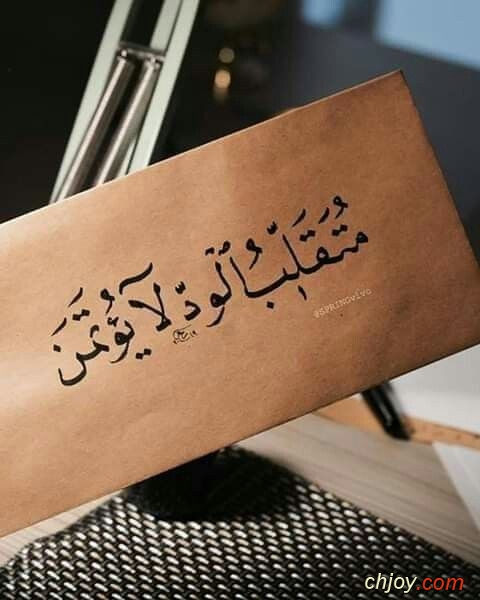 مُتَقَلِّبُ ٱلْودّ لَا يُؤتَمَنَ
@SPRINGVIVO
chjoy.com